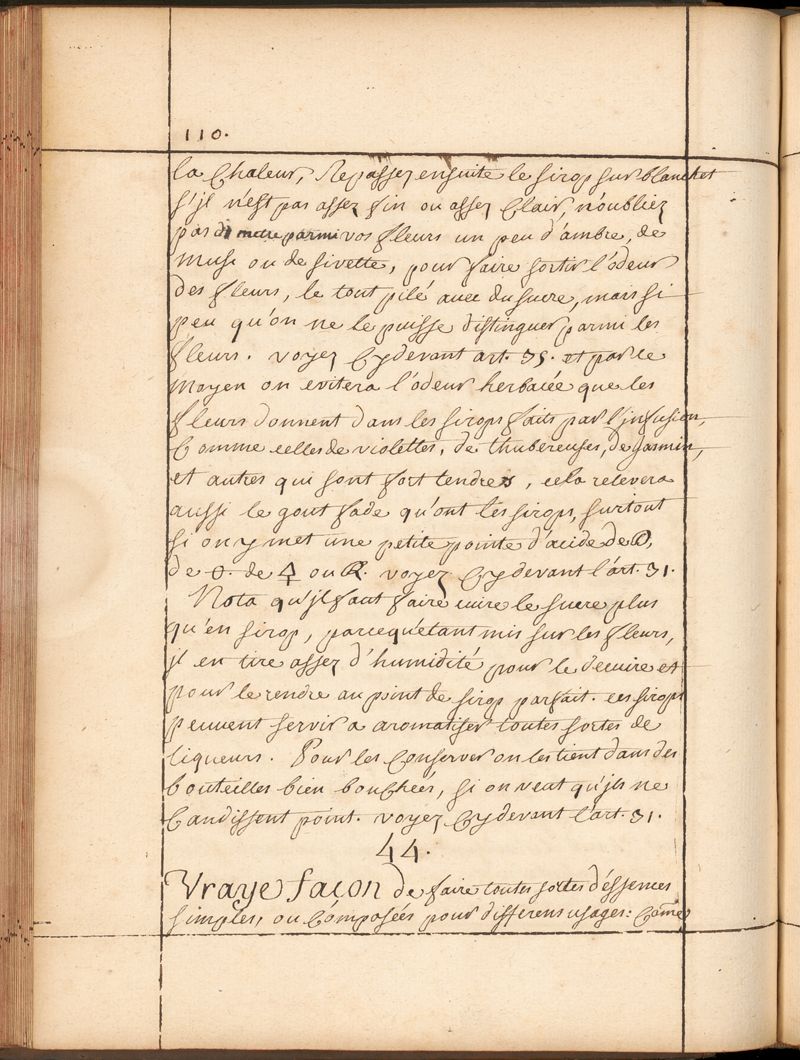 110.
la Chaleur, Repassez ensuite le sirop sur blanchet
s'jl n'est pas assez fin ou assez Clair, n'oubliez
pas de mettre parmi vos fleurs un peu d'ambre, de
musc ou de sivette, pour faire sortir l'odeur
des fleurs, le tout pilé avec du sucre, mais si
peu qu'on ne le puisse distinguer parmi les
fleurs. voyez Cy devant art. 35. et par ce
moyen on evitera l'odeur herbacée que les
fleurs donnent dans les sirops faits par l'jnfusion,
Comme celles de violettes, de thubereuses, de Jasmin,
et autres qui sont fort tendres, cela relevera
aussi le gout fade qu'ont les sirops, surtout
si on y met une petite pointe d'acide de
de de ou voyez Cy devant l'art. 31.
Nota qu'jl faut faire cuire le sucre plus
qu'en sirop, parcequ'etant mis sur les fleurs,
jl en tire assez d'humidité pour le décuire et
pour le rendre au point de sirop parfait. ces sirops
peuvent servir a aromatiser toutes sortes de
liqueurs. Pour les Conserver on les tient dans des
bouteilles bien bouchées, si on veut qu'jls ne
Candissent point. voyez Cy devant l'art. 31.
44.
Vraye façon de faire toutes sortes d'éssences
simples, ou Composées pour differens usages: Come